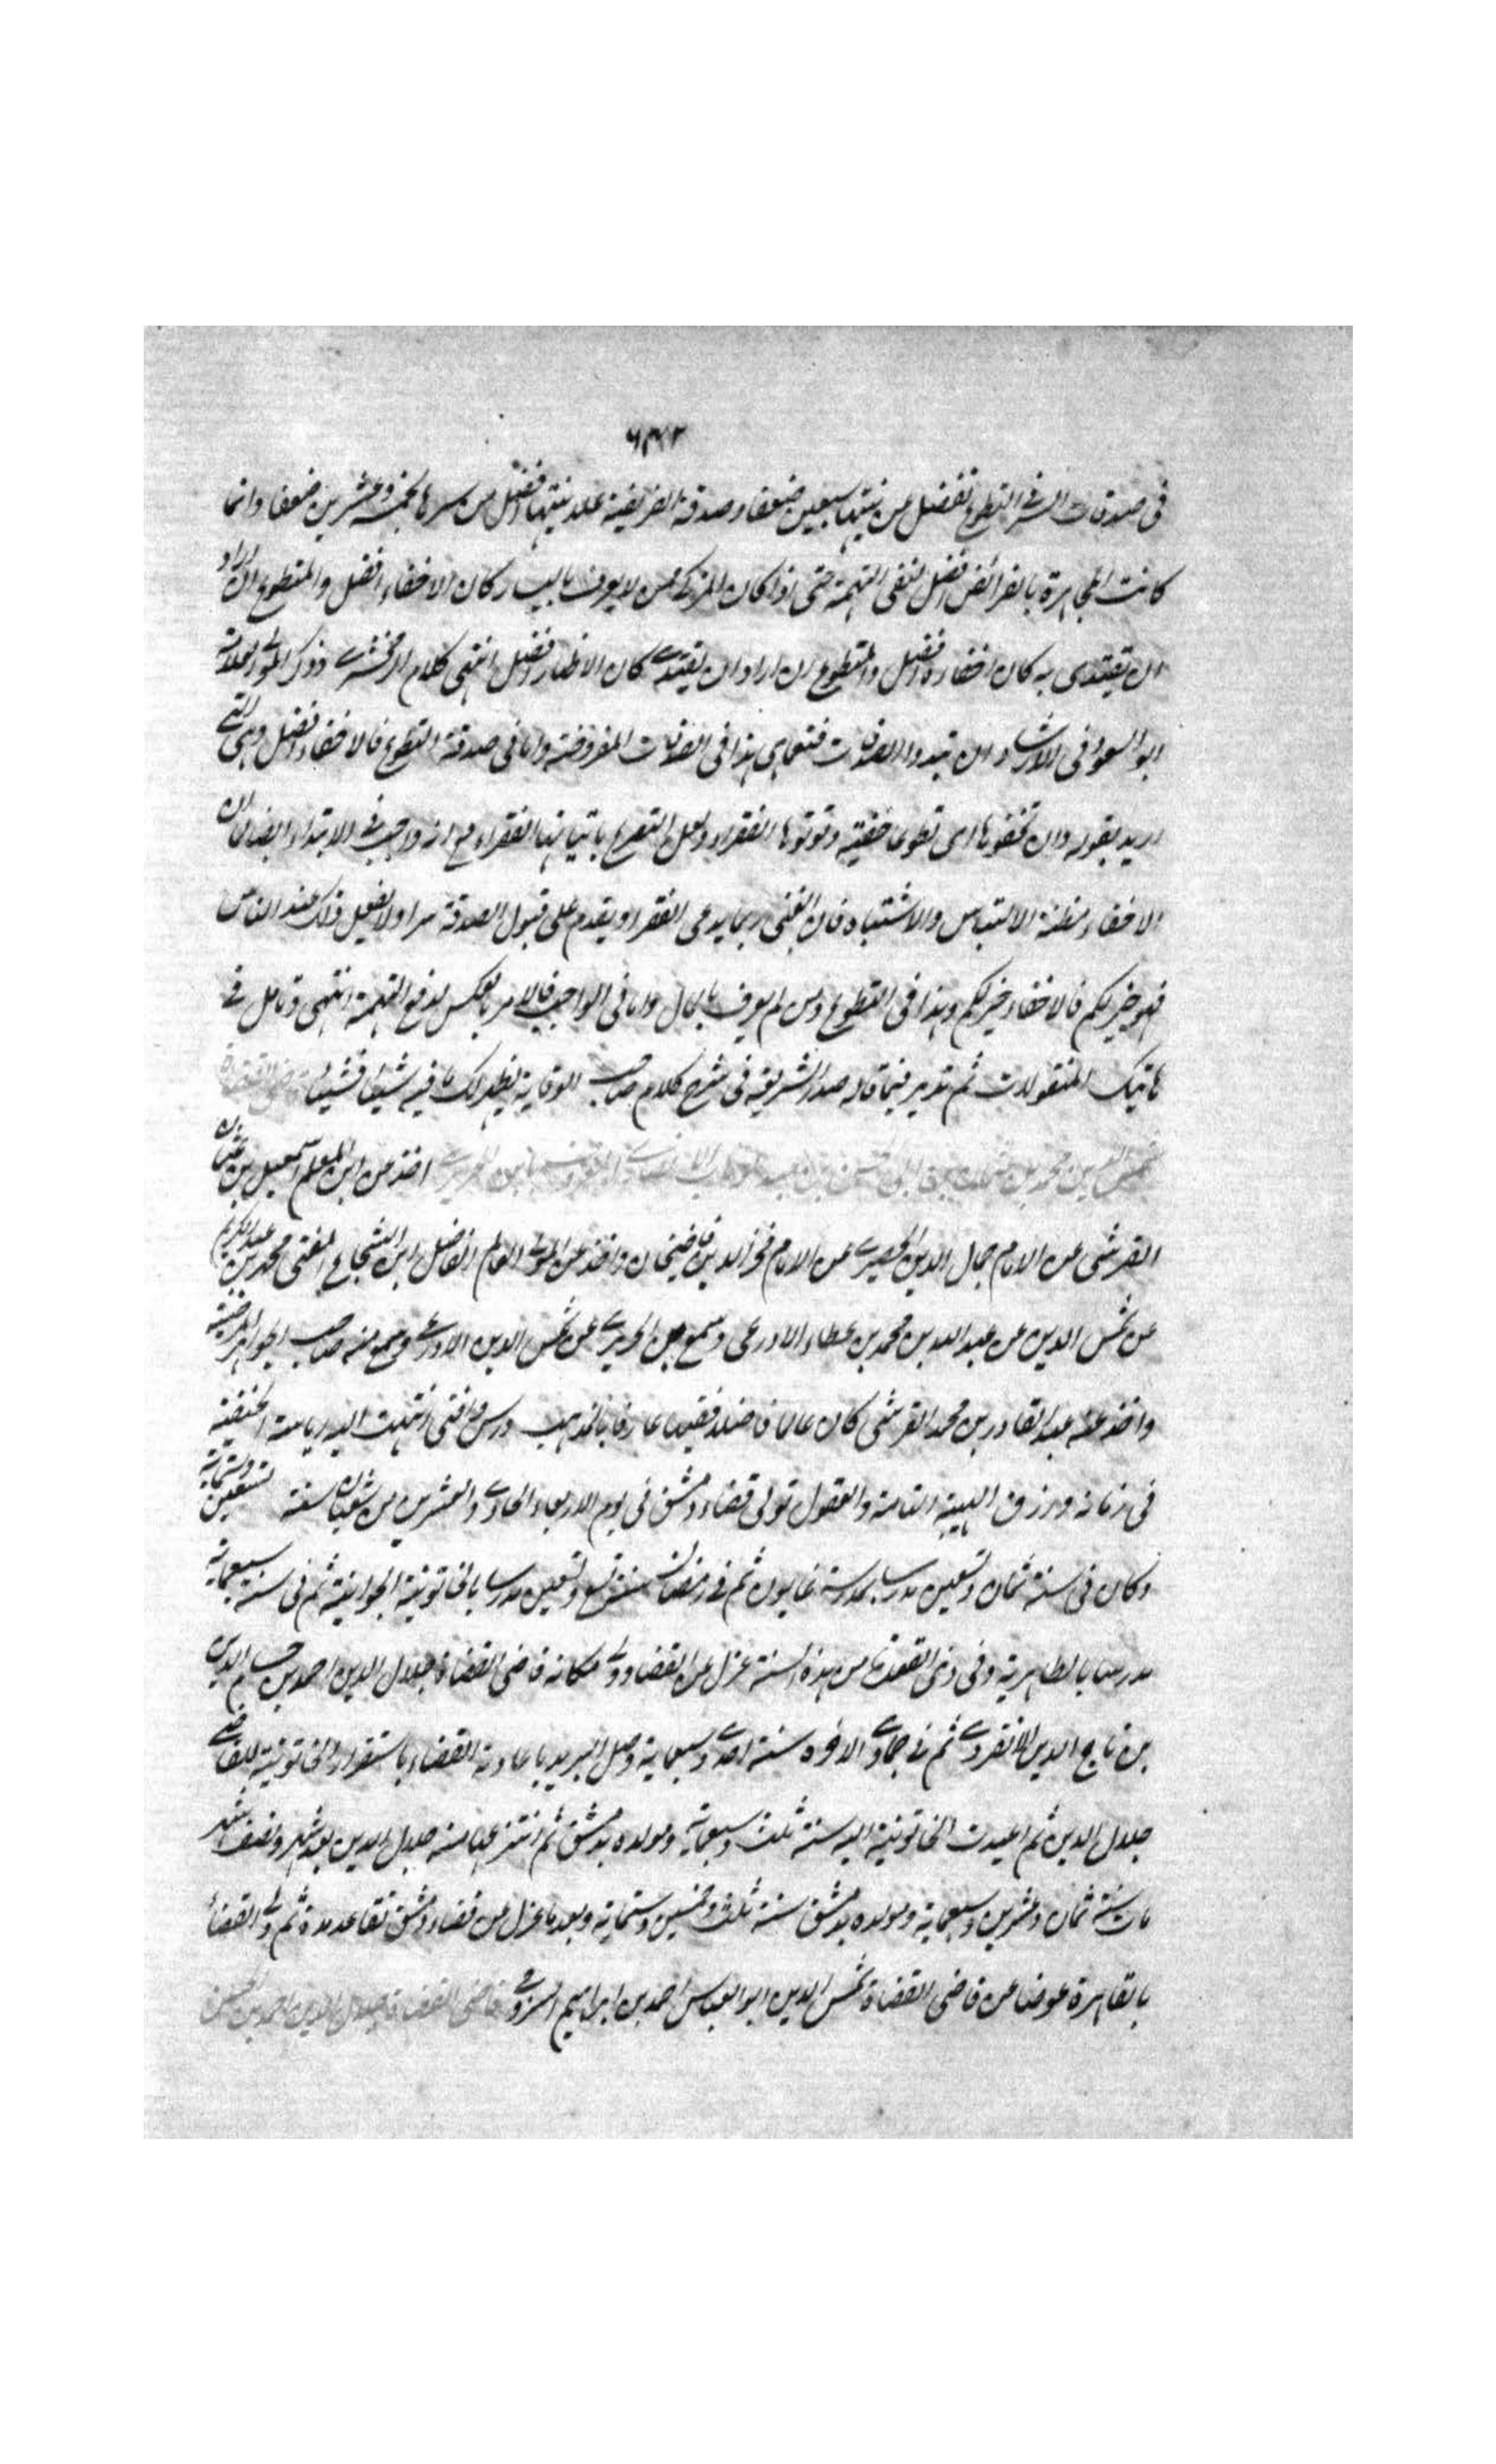 في صدقات السر في التطوع تفضل عن علانيتها سبعين ضعفا وصدقة الفريضة علانيتها افضل من سرها بخمسة وعشرين ضعفا وانما
كانت المجاهرة بالفرائض افضل لنفى التهمة حتى اذا كان المزكى ممن لا يعرف باليسار كان الاخفاء افضل والمتطوع ان اراد
ان يقتدى به كان اخفاؤه افضل والمتطوع ان اراد ان يقتدى كان الاظهار افضل انتهى كلام الزمخشرى وذكر المولى العلامة
ابو السعود فى الارشاد ان تبدوا الصدقات فنعما هى هذا فى الصدقات المفروضة واما فى صدقة التطوع فالاخفاء افضل وهى التى
اريد بقوله وان تخفوها اى تطوعا خفية وتوتوها الفقراء ولعل التصريح بايتائها الفقراء مع انه واجب فى الابتداء ايضا لان
الاخفاء مظنة الالتباس والاشتباه فان الغنى ربما يدعى الفقر ويقدم على قبول الصدقة سرا ولا يفعل ذلك عند الناس
فهو خير لكم فالاخفاء خير لكم وهذا فى التطوع ومن لم يعرف بالمال واما فى الواجب فالامر بالعكس لدفع التهمة انتهى وتامل فى
هاتيك المنقولات ثم تدبر فيما قاله صدر الشريعة فى شرح كلام صاحب الوقاية يظهر لك ما فيه شيئا فشيئا قاضى القضاة
شمس الدين محمد بن عثمان بن ابى الحسن بن عبد الوهاب الانصارى المعروف بابن الحريرى اخذ عن ابن المعلم اسمعيل بن عثمان
القرشى عن الامام جمال الدين الحصيرى عن الامام فخر الدين قاضيخان واخذ عن المولى العالم الفاضل ابن الشجاع المفتى محمد بن عبد الكريم
عن شمس الدين عن عبد الله بن محمد بن عطاء الاذرعى وسمع ابن الحريرى عن شمس الدين الاذرعى وسمع منه صاحب الجواهر المضية
واخذ عنه عبد القادر بن محمد القرشى كان عالما فاضلا فقيها عارفا بالمذهب درس وافتى انتهت اليه رياسة الحنفية
فى زمانه ورزق الهيبة التامة والقبول تولى قضاء دمشق فى يوم الاربعاء الحادى والعشرين من شعبان سنة تسعين وستماية
وكان فى سنة ثمان وتسعين مدرسا بمدرسة ثم فى رمضان سنة تسع وتسعين مدرسا بالخاتونية الجوانية ثم فى سنة سبعماية
مدرسا بالظاهرية وفى ذى القعدة من هذه السنة عزل عن القضاء وولى مكانه قاضى القضاة جلال الدين احمد بن حسام الدين
بن تاج الدين الانقروى ثم فى جمادى الاخره سنة احدى وسبعماية وصل البريد باعادته القضاء باستقرار الخاتونية للقاضى
جلال الدين ثم اعيدت الخاتونية اليه سنة ثلث وسبعماية ومولده بدمشق ثم انتزعها منه جلال الدين بعد شهر ونصف شهر
مات سنة ثمان وعشرين وسبعماية ومولده بدمشق سنة ثلث وخمسين وستماية وبعد ما عزل من قضاء دمشق تقاعد مدة ثم ولى القضاء
بالقاهرة عوضا عن قاضى القضاة شمس الدين ابو العباس احمد بن ابراهيم السروجى قاضى القضاة جلال الدين احمد بن الحسن